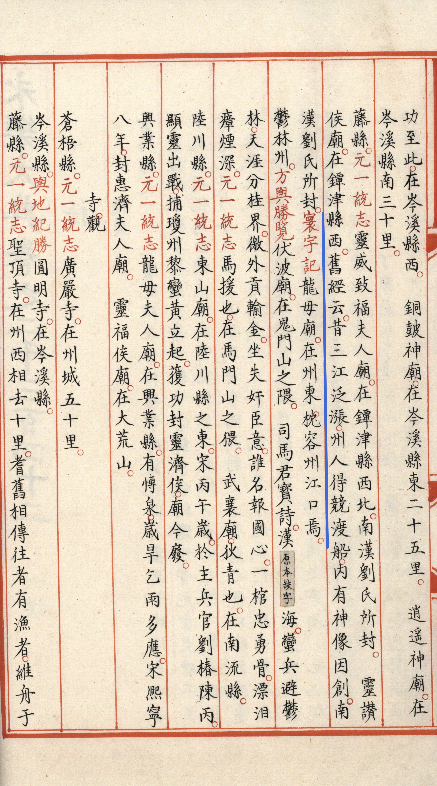 功至此在岑溪縣西　銅皷神廟在岑溪縣東二十五里　逍遥神廟在
岑溪縣南三十里
藤縣元一統志靈威致福夫人廟在鐔津縣西北南漢劉氏所封　靈讃
侯廟在鐔津縣西舊經云昔三江泛漲州人得競渡船内有神像因創南
漢劉氏所封寰宇記龍母廟在州東枕容州江口焉
鬱林州方輿勝覽伏波廟在鬼門山之隈　司馬君實詩漢原本缺字海蠻兵避鬱
林天涯分桂界徼外貢輸金坐失奸臣意誰名報國心一棺忠勇骨漂泪
瘴煙深元一統志馬援也在馬門山之偎　武襄廟狄青也在南流縣
陸川縣元一統志東山廟在陸川縣之東宋丙午歲於主兵官劉椿陳丙
顯靈出戰捕瓊州黎蠻黄立起獲功封靈濟侯廟今廢
興業縣元一統志龍母夫人廟在興業縣有愽泉歲旱乞雨多應宋熈寧
八年封惠濟夫人廟　靈福侯廟在大荒山
寺觀
蒼梧縣元一統志廣嚴寺在州城五十里
岑溪縣輿地紀勝圓明寺在岑溪縣
藤縣元一統志聖頂寺在州西相去十里耆舊相傳往者有漁者維舟于